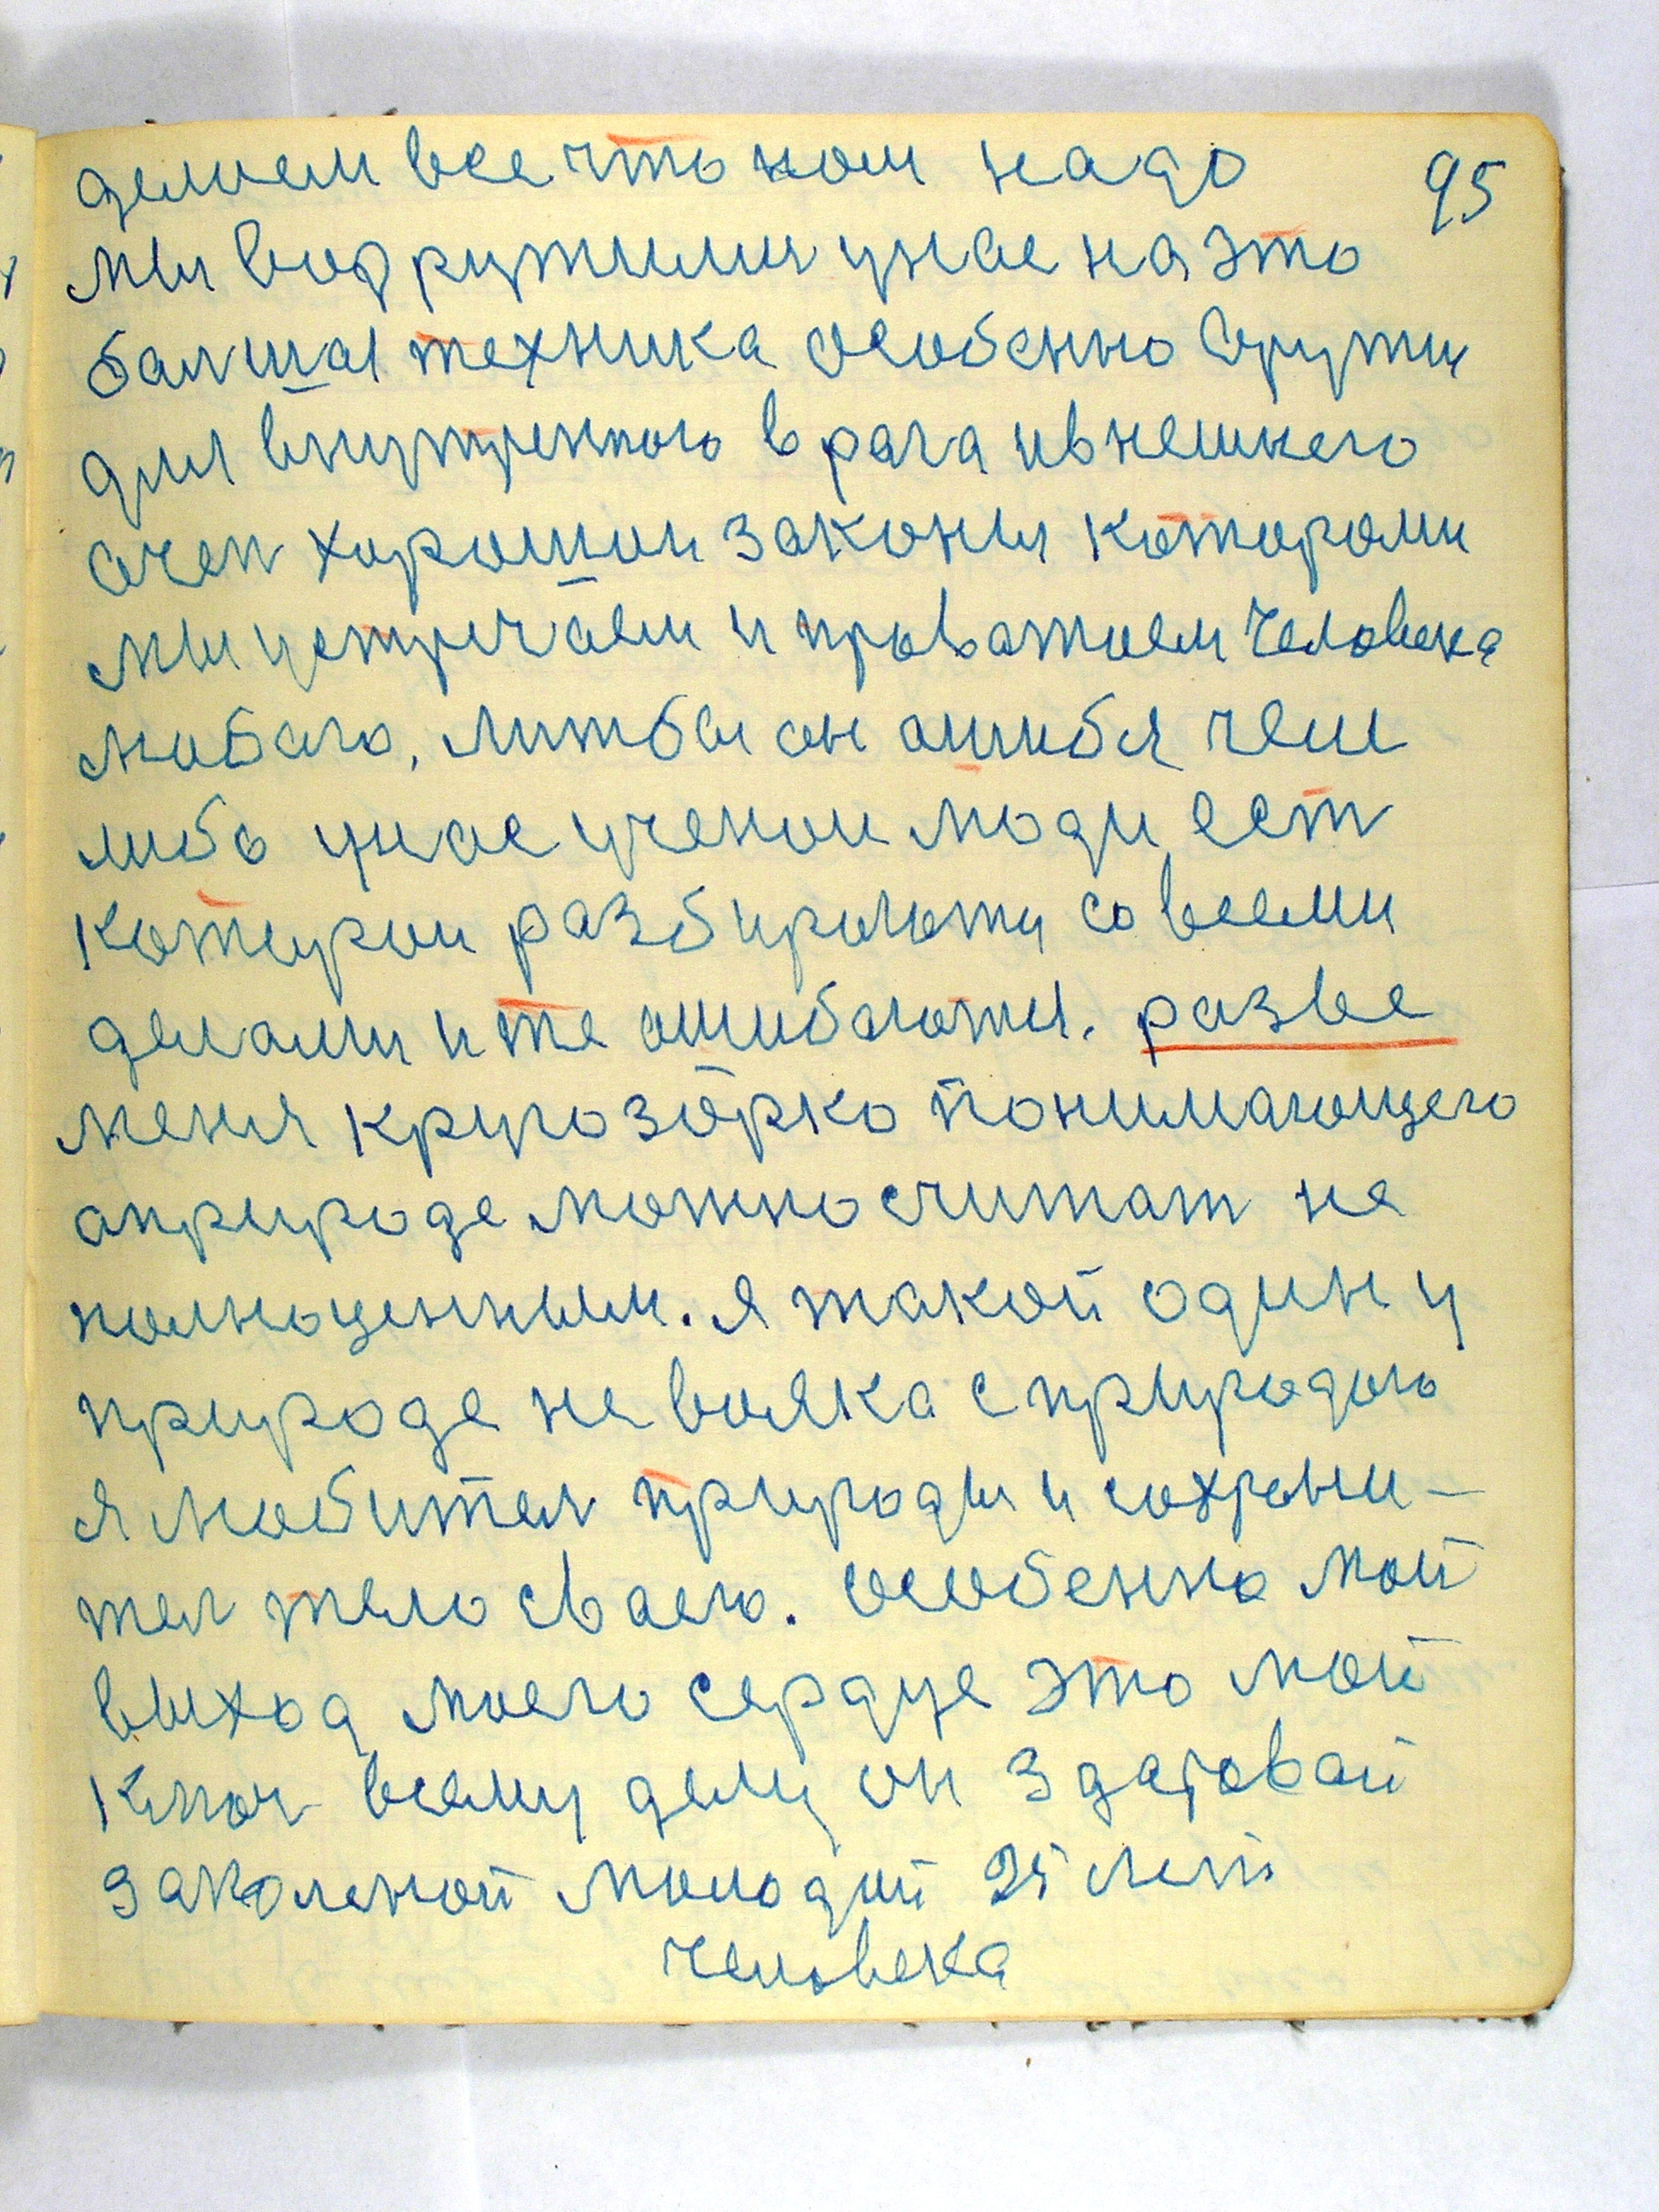 делоем все что ном надо 95
мы вооружилии унас на это
балшая техника особенно Оружия
для внутренного врага ивнешнего
очен хорошои законы котороми
мы устричаем и проважаем человека
любого, лижбы он ошибся чем
либо унас ученои люди ест
которои разбираются со всеми
делами и те ошибаются. разве
меня кругозорко понимающего
априроде можно считат не
полноценным. я такой один у
природе не вояка с природою
я любител природы и сохрани-
тел тело своего. особенно мой
выход моего сердце это мой
ключ всему делу он здаровай
заколеной молодой 25 лет
человека